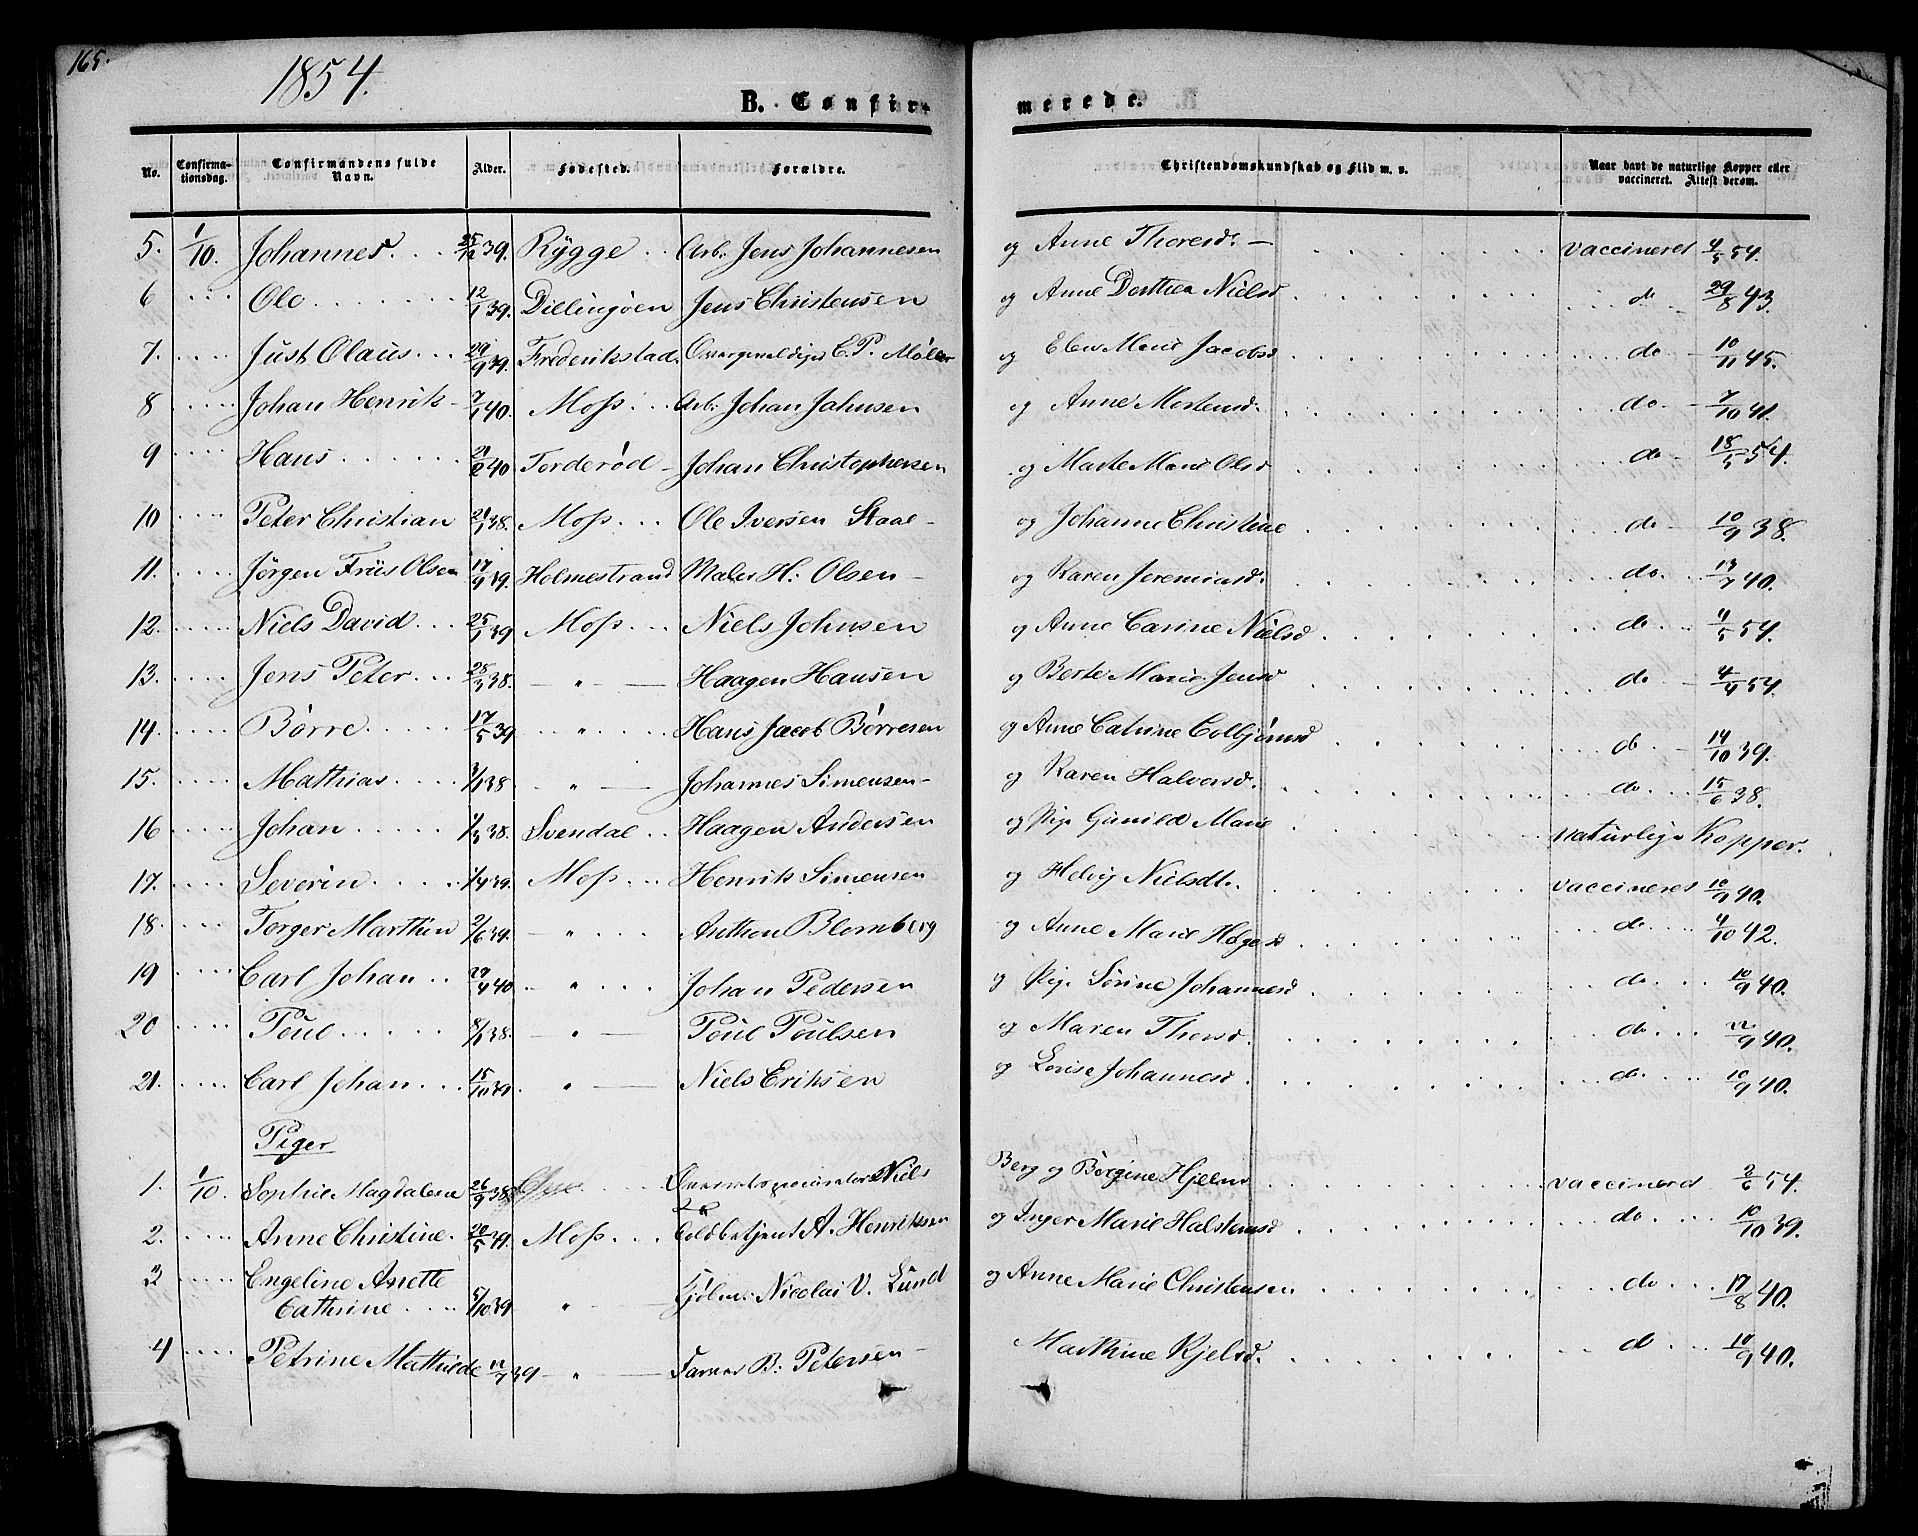 165.
1854.
B. Confirmerede.
No. Confirmationsdag. Confirmandens fulde Navn. Alder. Fødested. Forældre. Christendomskundskab og Flid m. v. Naar havt de naturlige Kopper eller vaccineret. Attest derom.
5. 1/10. Johannes. 25/12 39. Rygge Arb. Jens Johannesen og Anne Thoresd. vaccineret 4/5 54.
6 Ole 12/1 39. Dillingøen Jens Christensen og Anne Dorthea Nielsd do 29/8 43.
7. Just Olaus 29/9 39. Frederikstad. C. P. Møller og Elen Marie Jacobsd do 10/11 45.
8 Johan Henrik 7/1 40. Moss Arb. Johan Jahnsen og Anne Mortensd. do. 7/10 41.
9 Hans 21/2 40 Torderød Johan Christophersen og Marte Marie Olsd do 18/5 54.
10 Peter Christian 21/1 38. Moss Ole Iversen Staal og Johanne Christine do 10/9 38.
11. Jørgen Friis Olsen 17/9 39. Holmestrand Maler H. Olsen og Karen Jeremiasd. do. 13/7 40.
12. Niels David 25/1 39 Moss Niels Johnsen og Anne Carine Nielsd do 4/5 54.
13. Jens Peter 28/3 38. " Haagen Hansen og Berte Marie Jensd do 4/4 54.
14. Børre 17/5 39 " Hans Jacob Børresen og Anne Catrine Colbjørnsd do 14/10 39.
15. Mathias 3/1 38 " Johannes Simensen og Karen Halvorsd. do 15/6 38.
16 Johan 1/3 38. Svendal Haagen Andersen og Pige Gunild Marie naturlige Kopper.
17. Severin 1/4 39. Moss Henrik Simensen og Helvig Nielsdt. vaccineret 10/9 40.
18. Torger Marthin 2/6 39. " Anthon Blomberg og Anne Marie Helgesd do 4/10 42.
19 Carl Johan 29/4 40 " Johan Pedersen og Pige Sørine Johannesd do 10/9 40.
20 Poul 8/1 38. " Poul Poulsen og Maren Thorsd. do 22/9 40.
21. Carl Johan 15/10 39. " Niels Eriksen og Lovise Johannesd. do. 10/9 40.
Piger
1. 1/10. Sophie Magdalene 26/9 38 Overretsprocurator Niels Berg og Børgine Hjelm vaccinerd 2/6 54.
2. Anne Christine 20/5 39. Moss Toldbetjent A. Henriksen og Inger Marie Halstensd do 10/10 39.
3 Engeline Anette
Cathrine 5/10 39 " Nicolai V. Lund og Anne Marie Christensen do 17/8 40.
4 Petrine Mathilde 12/7 39 " Farver B. Petersen Marthine Kjelsd. do 10/9 40.